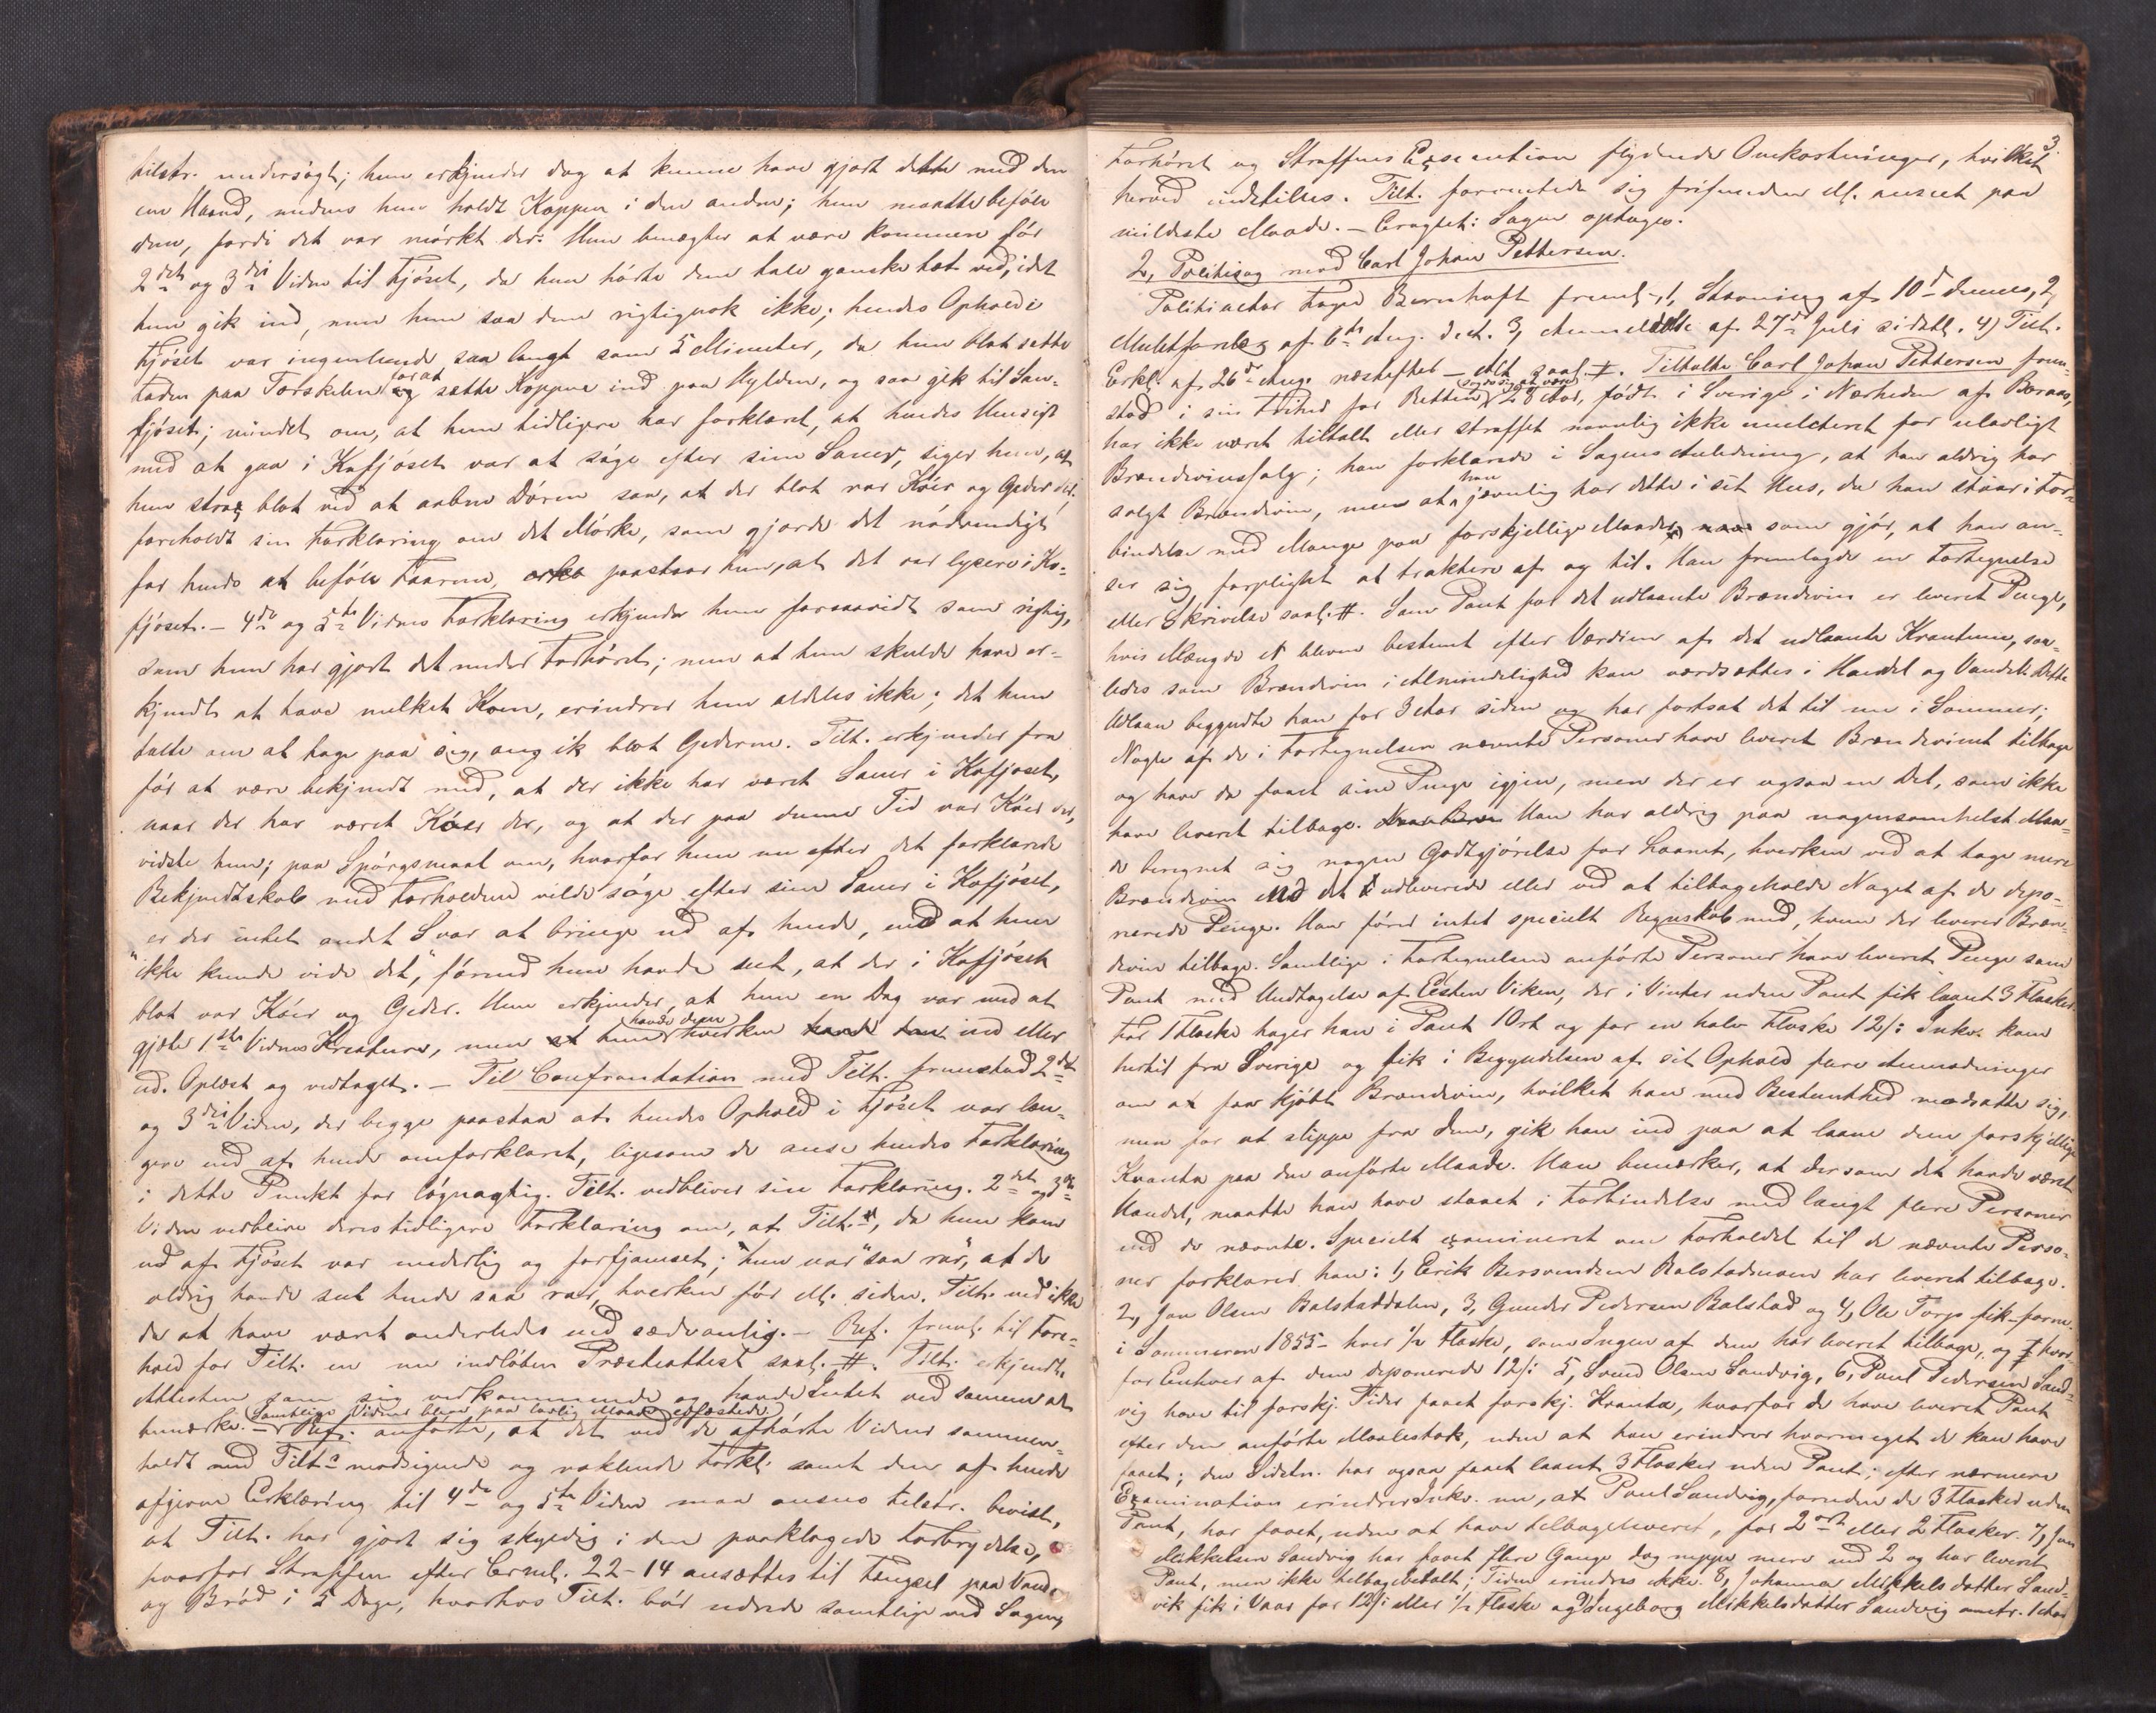 tilstr. undersøgt; hun erkjender dog at kunne have gjort dette med den
ene Haand, medens hun holdt Koppen i den anden; hun maatte beføle
dem, fordi det var mørkt der. Hun benægter at være kommen før
2det og 3die Vidne til Fjøset, da hun hørte dem tale ganske tæt ved, idet
hun gik ind, men hun saa dem rigtignok ikke; hendes Ophold i
Fjøset var ingenlunde saa langt som 5 Minuter, da hun blot satte
Foden paa Tærskelen for at sætte Koppen ind paa Hylden, og saa gik til Sau-
fjøset; mindet om, at hun tidligere har forklaret, at hendes Hensigt
med at gaa i Kofjøset var at søge efter sine Sauer, siger hun, at
hun strax blot ved at aabne Døren saa, at der blot var Kóer og Geder der;
foreholdt sin Forklaring om det Mørke, som gjorde det nødvendigt
for hende at beføle Faarene, paastaar hun, at det var lysere i Ko-
fjøset. - 4de og 5te Vidnes Forklaring erkjender hun forsaavidt som rigtig,
som hun har gjort det under Forhøret; men at hun skulde have er-
kjendt at have melket Koen, erindrer hun aldeles ikke; det hun
talte om at tage paa sig, angik blot Gederne. Tilt. erkjender fra
før at være bekjendt med, at der ikke har været Sauer i Kofjøset,
naar der har været Kóer der, og at der paa denne Tid var Kóer der,
vidste hun; paa Spørgsmaal om, hvorfor hun nu efter det forklarede
Bekjendtskab med Forholdene vilde søge efter sine Sauer i Kofjøset,
er der intet andet Svar at bringe ud af hende, end at hun
"ikke kunde vide det", førend hun havde seet, at der i Kofjøset
blot var Kóer og Geder. Hun erkjender, at hun en Dag var med at
gjæte 1ste Vidnes Kreaturer, men hun havde dem hverken ind eller
ud. Oplæst og vedtaget. - Til Confrontation med Tilt. fremstod 2det
og 3die Vidne, der begge paastaa at hendes Ophold i Fjøset var læn-
gere end af hende omforklaret, ligesom de anse hendes Forklaring
i dette Punkt for løgnagtig. Tilt. vedbliver sin Forklaring. 2det og 3die
Vidne vedblive deres tidligere Forklaring om, at Tilt., da hun kom
ud af Fjøset var underlig og forfjamset; "hun var saa rar", at de
aldrig havde seet hende saa rar, hverken før ell. siden. Tilt. ved ikke
da at have været anderledes end sædvanlig. - Ref. freml. til Fore-
hold for Tilt. en nu indløben Præsteattest saal. #. Tilt. erkjendte
Attesten som sig vedkommende og havde Intet ved samme at
bemærke. (Samtlige Vidner bleve paa lovlig Maade edfæstede.)
- Ref. anførte, at det ved de afhørte Vidner sammen-
holdt med Tilt.s modsigende og vaklende Forkl. samt den af hende
afgivne Erklæring til 4de og 5te Vidne maa ansees tilstr. bevist,
at Tilt. har gjort sig skyldig i den paaklagede Forbrydelse,
hvorfor Straffen efter Crml. 22-14 ansættes til Fængsel paa Vand
og Brød i 5 Dage, hvorhos Tilt. bør udrede samtlige ved Sagen,
3.
Forhøret og Straffens Execution flydende Omkostninger, hvilket
herved indstilles. Tilt. forventede sig frifunden ell. anseet paa
mildeste Maade. - Eragtet: Sagen optages.
2, Politisag mod Carl Johan Pettersen.
Politiactor Foged Bernhoft freml. 1, Stævning af 10d dennes, 2,
Mulctforelæg af 6te Aug. d. A. 3, Anmeldelse af 27d Juli sidstl. 4) Tilt.
Erkl. af 26de Aug. næstefter - Alt saal. #. Tiltalte Carl Johan Pettersen frem-
stod i sin Frihed for Retten, (sagde sig at være) 28 Aar, født i Sverige i Nærheden af Boraas,
har ikke været tiltalt eller straffet navnlig ikke mulcteret for ulovligt
Brændevinssalg; han forklarede i Sagens Anledning, at han aldrig har
solgt Brændevin, men at han jævnlig har dette i sit Hus, da han staar i For-
bindelse med Mange paa forskjellige Maader, som gjør, at han an-
ser sig forpligtet at traktere af og til. Han fremlagde en Fortegnelse
eller Skrivelse saal. #. Som Pant for det udlaante Brændevin er leveret Penge,
hvis Mængde er bleven bestemt efter Værdien af det udlaante Kvantum, saa-
ledes som Brændevin i Almindelighed kan værdsættes i Handel og Vandel. Dette
Udlaan begyndte han for 3 Aar siden og har fortsat det til nu i Sommer;
Nogle af de i Fortegnelsen nævnte Personer have leveret Brændevinet tilbage
og have da faaet sine Penge igjen, men der er ogsaa en Del, som ikke
have leveret tilbage. Han har aldrig paa nogensomhelst Maa-
de beregnet sig nogen Godtgjørelse for Laanet, hverken ved at tage mere
Brændevin end det udleverede eller ved at tilbageholde Noget af de depo-
nerede Penge. Han fører intet specielt Regnskab med, hvem der leverer Bræn-
devin tilbage. Samtlige i Fortegnelsen anførte Personer have leveret Penge som
Pant med Undtagelse af Eisten Viken, der i Vinter uden Pant fik laant 3 Flasker.
For 1 Flaske tager han i Pant 1 Ort og for en halv Flaske 12 ß. Inkv. kom
hertil fra Sverige og fik i Begyndelsen af sit Ophold flere Anmodninger
om at faa kjøbt Brændevin, hvilket han med Bestemthed modsatte sig,
men for at slippe fra dem, gik han ind paa at laane dem forskjellige
Kvanta paa den anførte Maade. Han bemærker, at dersom det havde været
Handel, maatte han have staaet i Forbindelse med langt flere Personer
end de nævnte. Specielt examineret om Forholdet til de nævnte Perso-
ner forklarer han: 1, Erik Bersvendsen Balstadmoen har leveret tilbage.
2, Jon Olsen Balstaddalen, 3, Gunder Pedersen Balstad og 4, Ole Torp fik
i Sommeren 1855 hver 1/2 Flaske, som Ingen af dem har leveret tilbage, og hvor-
for Enhver af dem deponerede 12 ß. 5, Svend Olsen Sandvig, 6, Paul Pedersen Sand-
vig have til forskj. Tider faaet forskj. Kvanta, hvorfor de have leveret Pant
efter den anførte Maalestok, uden at han erindrer hvormeget de kan have
faaet; den Sidstn. har ogsaa faaet laant 3 Flasker uden Pant; efter nærmere
Examination erindrer Inkv. nu, at Paul Sandvig, foruden de 3 Flasker uden
Pant, har faaet, uden at have tilbageleveret, for 2 ort eller 2 Flasker. 7, Jon
Mikkelsen Sandvig har faaet flere Gange dog neppe mere end 2 og har leveret
Pant, men ikke tilbagebetalt; Tiden erindres ikke. 8, Johanna Mikkelsdatter Sand-
vik fik i Vaar for 12 ß eller 1/2 Flaske og 9, Ingeborg Mikkelsdatter Sandvig omtr. 1 Aar